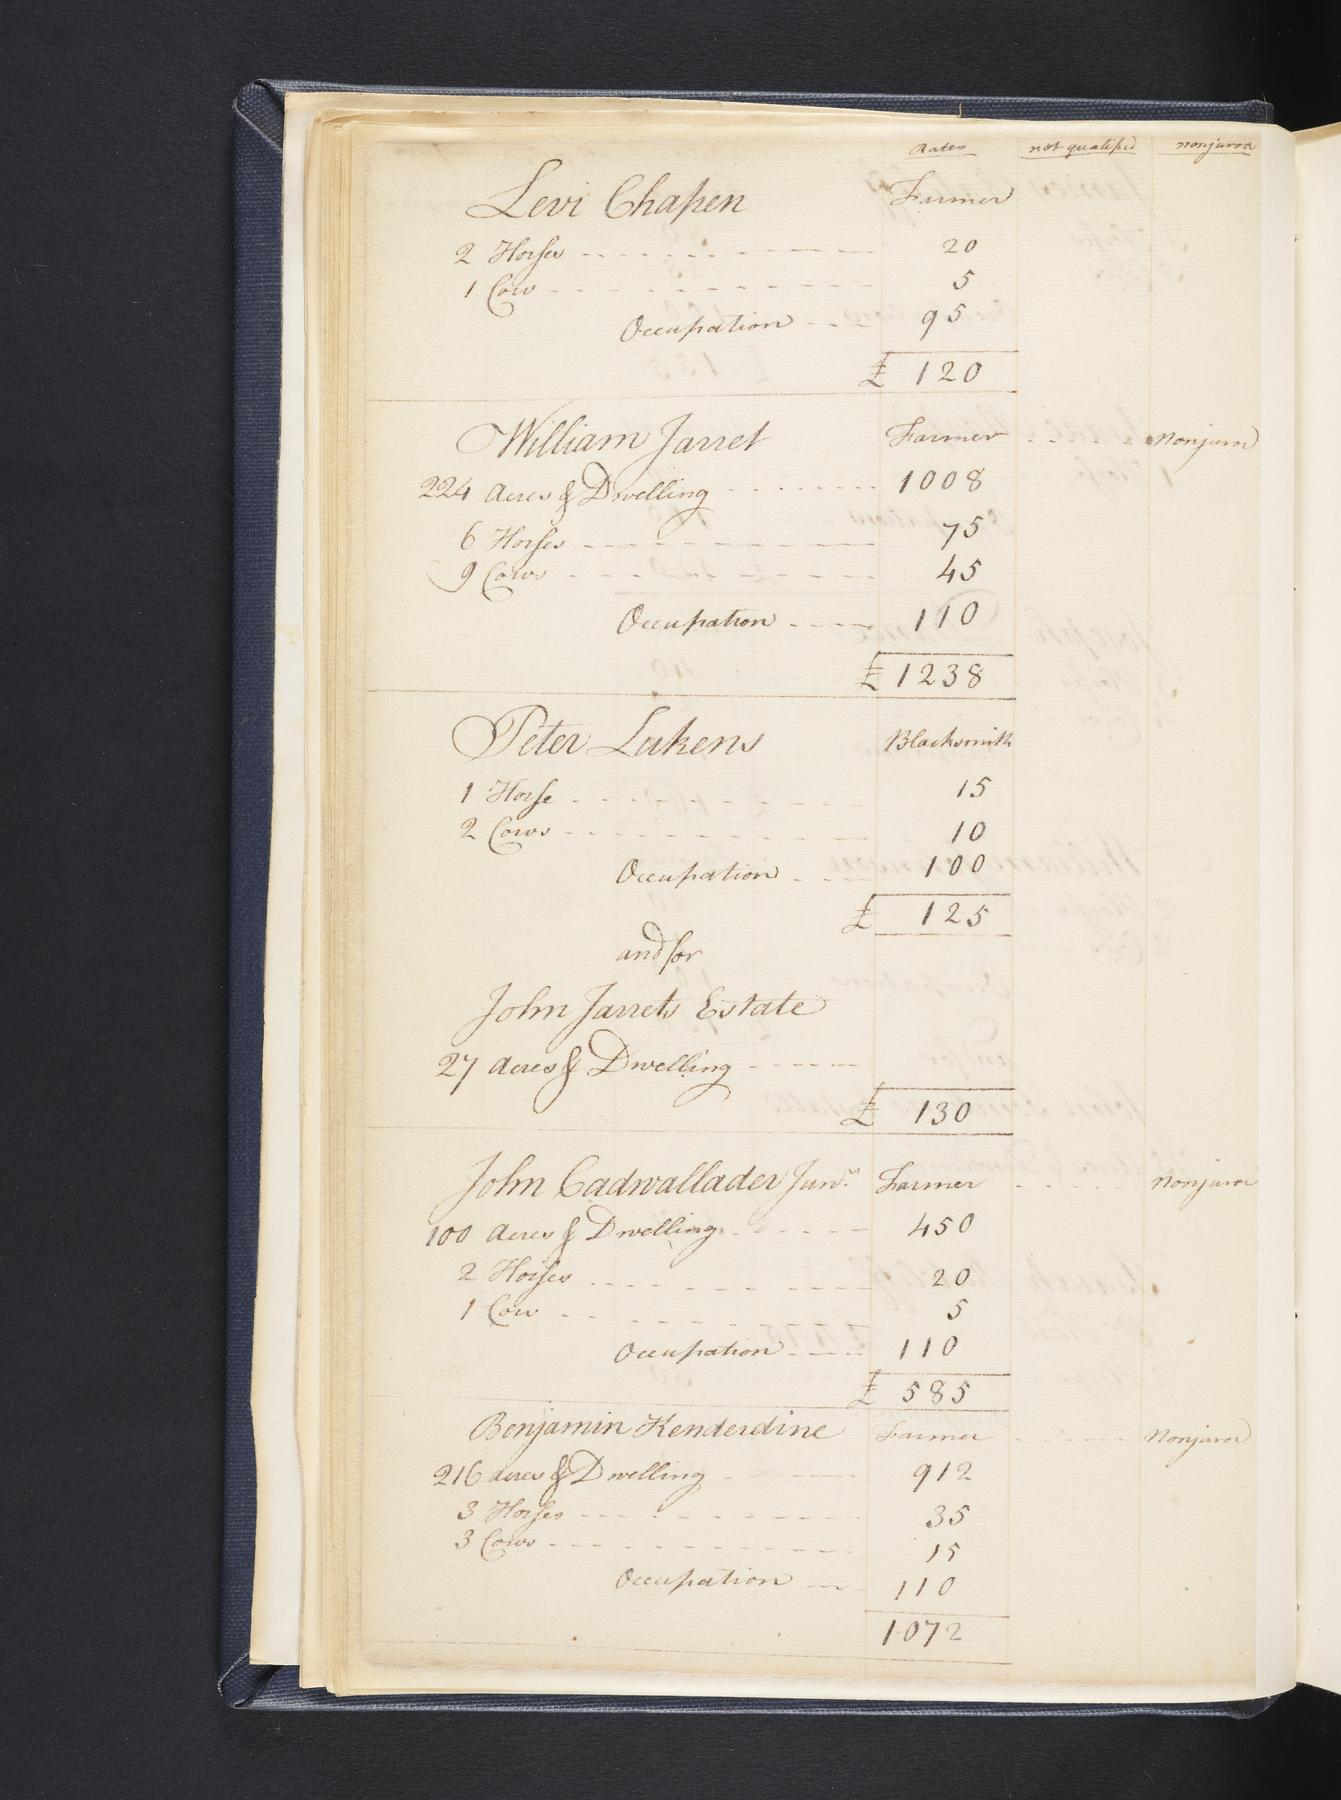 Rates not qualified nonjuror
Levi Chapen Farmer
2 Horses 20
1 Cow 5
Occupation 95
£ 120
William Jarret Farmer Nonjuror
224 Acres & Dwelling 1008
6 Horses 75
9 Cows 45
Occupation 110
£ 1238
Peter Lukens Blacksmith
1 Horse 15
2 Cows 10
Occupation 100
£ 125
and for
John Jarrets Estate
27 Acres & Dwelling
£ 130
John Cadwallader Junr Farmer Nonjuror
100 Acres & Dwelling 450
2 Horses 20
1 Cow 5
Occupation 110
£ 585
Benjamin Kenderdine Farmer Nonjuror
216 Acres & Dwelling 912
3 Horses 35
3 Cows 15
Occupation 110
1072